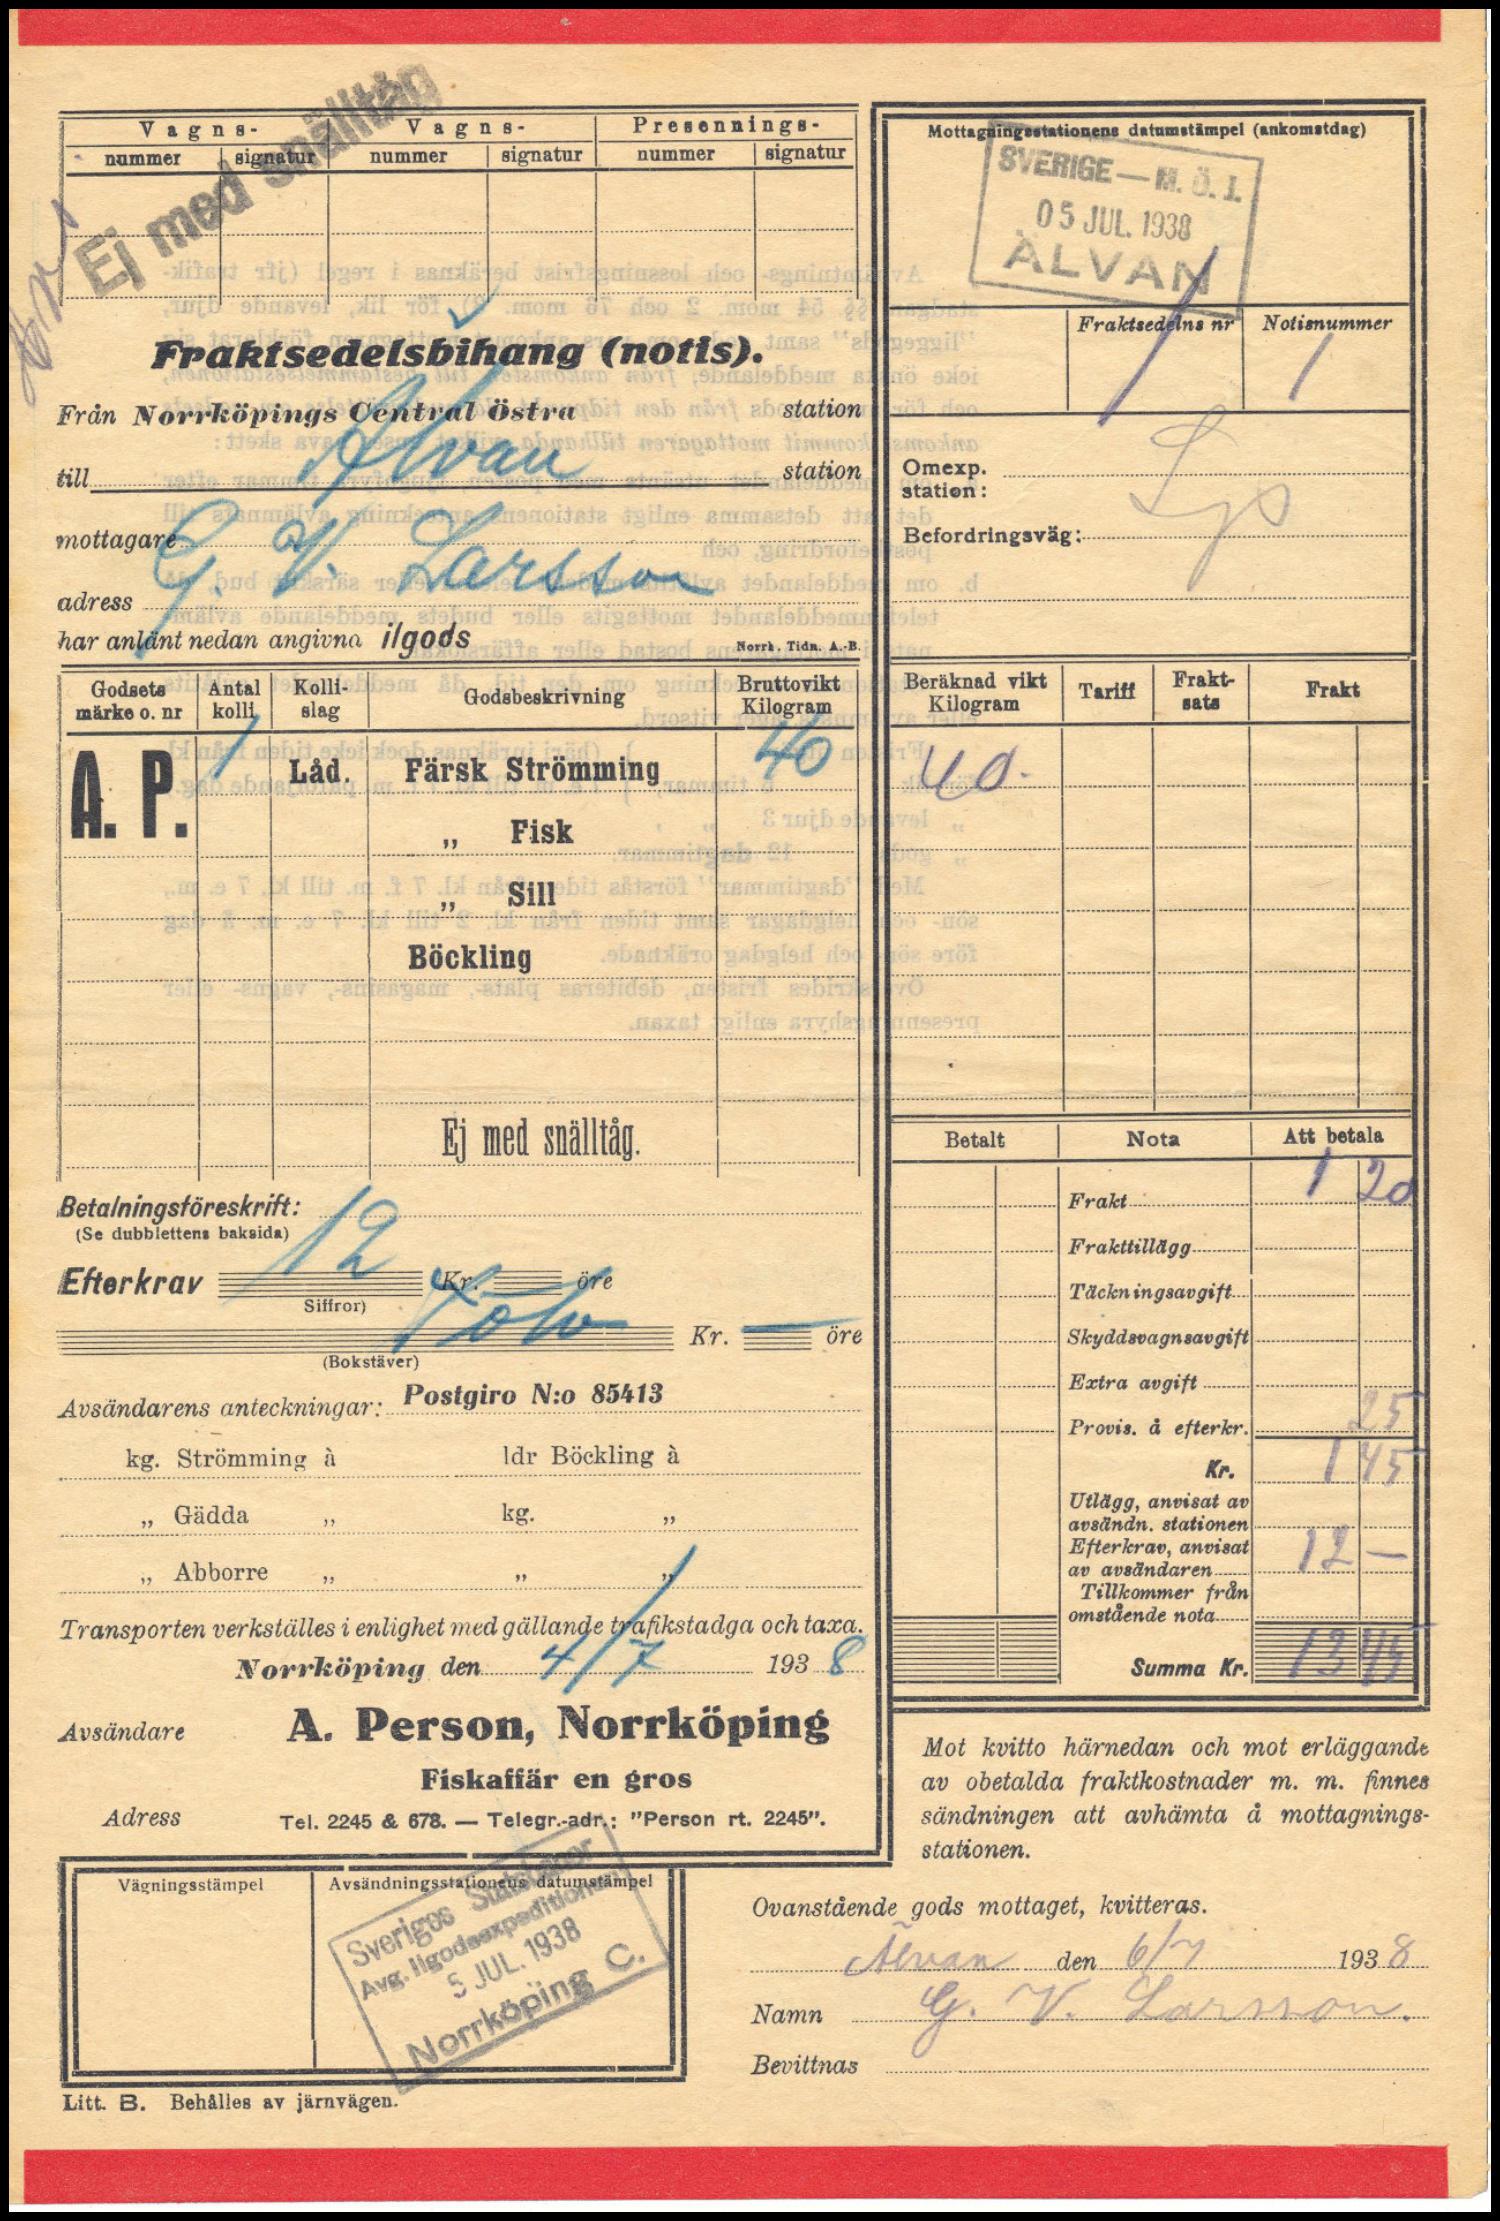 Ej med snälltåg
Vagns- Vagns- Presennings-
nummer signatur nummer signatur nummer signatur
Mottagningsstationens datumstämpel (ankomstdag)
SVERIGE — M. Ö. J.
05 JUL. 1938
ÄLVAN
Fraktsedelns nr Notisnummer
1 1
Fraktsedelsbihang (notis).
Från Norrköpings Central Östra station
till Älvan station
mottagare G. V. Larsson
adress
har anlänt nedan angivna ilgods
Norrk. Tidn. A.-B.
Omexp.
station:
Befordringsväg:
Godsets märke o. nr Antal kolli Kolli-slag Godsbeskrivning Bruttovikt Kilogram
Beräknad vikt Kilogram Tariff Frakt-sats Frakt
A. P. 1 Låd. Färsk Strömming 40 40.
„ Fisk
„ Sill
Böckling
Ej med snälltåg.
Betalningsföreskrift:
(Se dubblettens baksida)
Efterkrav 12 Kr. öre
Siffror)
Tolv Kr. — öre
(Bokstäver)
Avsändarens anteckningar: Postgiro N:o 85413
kg. Strömming à ldr Böckling à
„ Gädda „ kg. „
„ Abborre „ „ „
Transporten verkställes i enlighet med gällande trafikstadga och taxa.
Norrköping den 4/7 1938
Avsändare A. Person, Norrköping
Fiskaffär en gros
Adress Tel. 2245 & 678. — Telegr.-adr.: "Person rt. 2245".
Vägningsstämpel Avsändningsstationens datumstämpel
Sveriges Statsbanor
Avg. Ilgodsexpeditionen
5 JUL. 1938
Norrköping C.
Litt. B. Behålles av järnvägen.
Betalt Nota Att betala
Frakt 1 20
Frakttillägg
Täckningsavgift
Skyddsvagnsavgift
Extra avgift
Provis. å efterkr. 25
Kr. 1 45
Utlägg, anvisat av
avsändn. stationen
Efterkrav, anvisat
av avsändaren 12 —
Tillkommer från
omstående nota
Summa Kr. 13 45
Mot kvitto härnedan och mot erläggande
av obetalda fraktkostnader m. m. finnes
sändningen att avhämta å mottagnings-
stationen.
Ovanstående gods mottaget, kvitteras.
Älvan den 6/7 1938
Namn G. V. Larsson.
Bevittnas